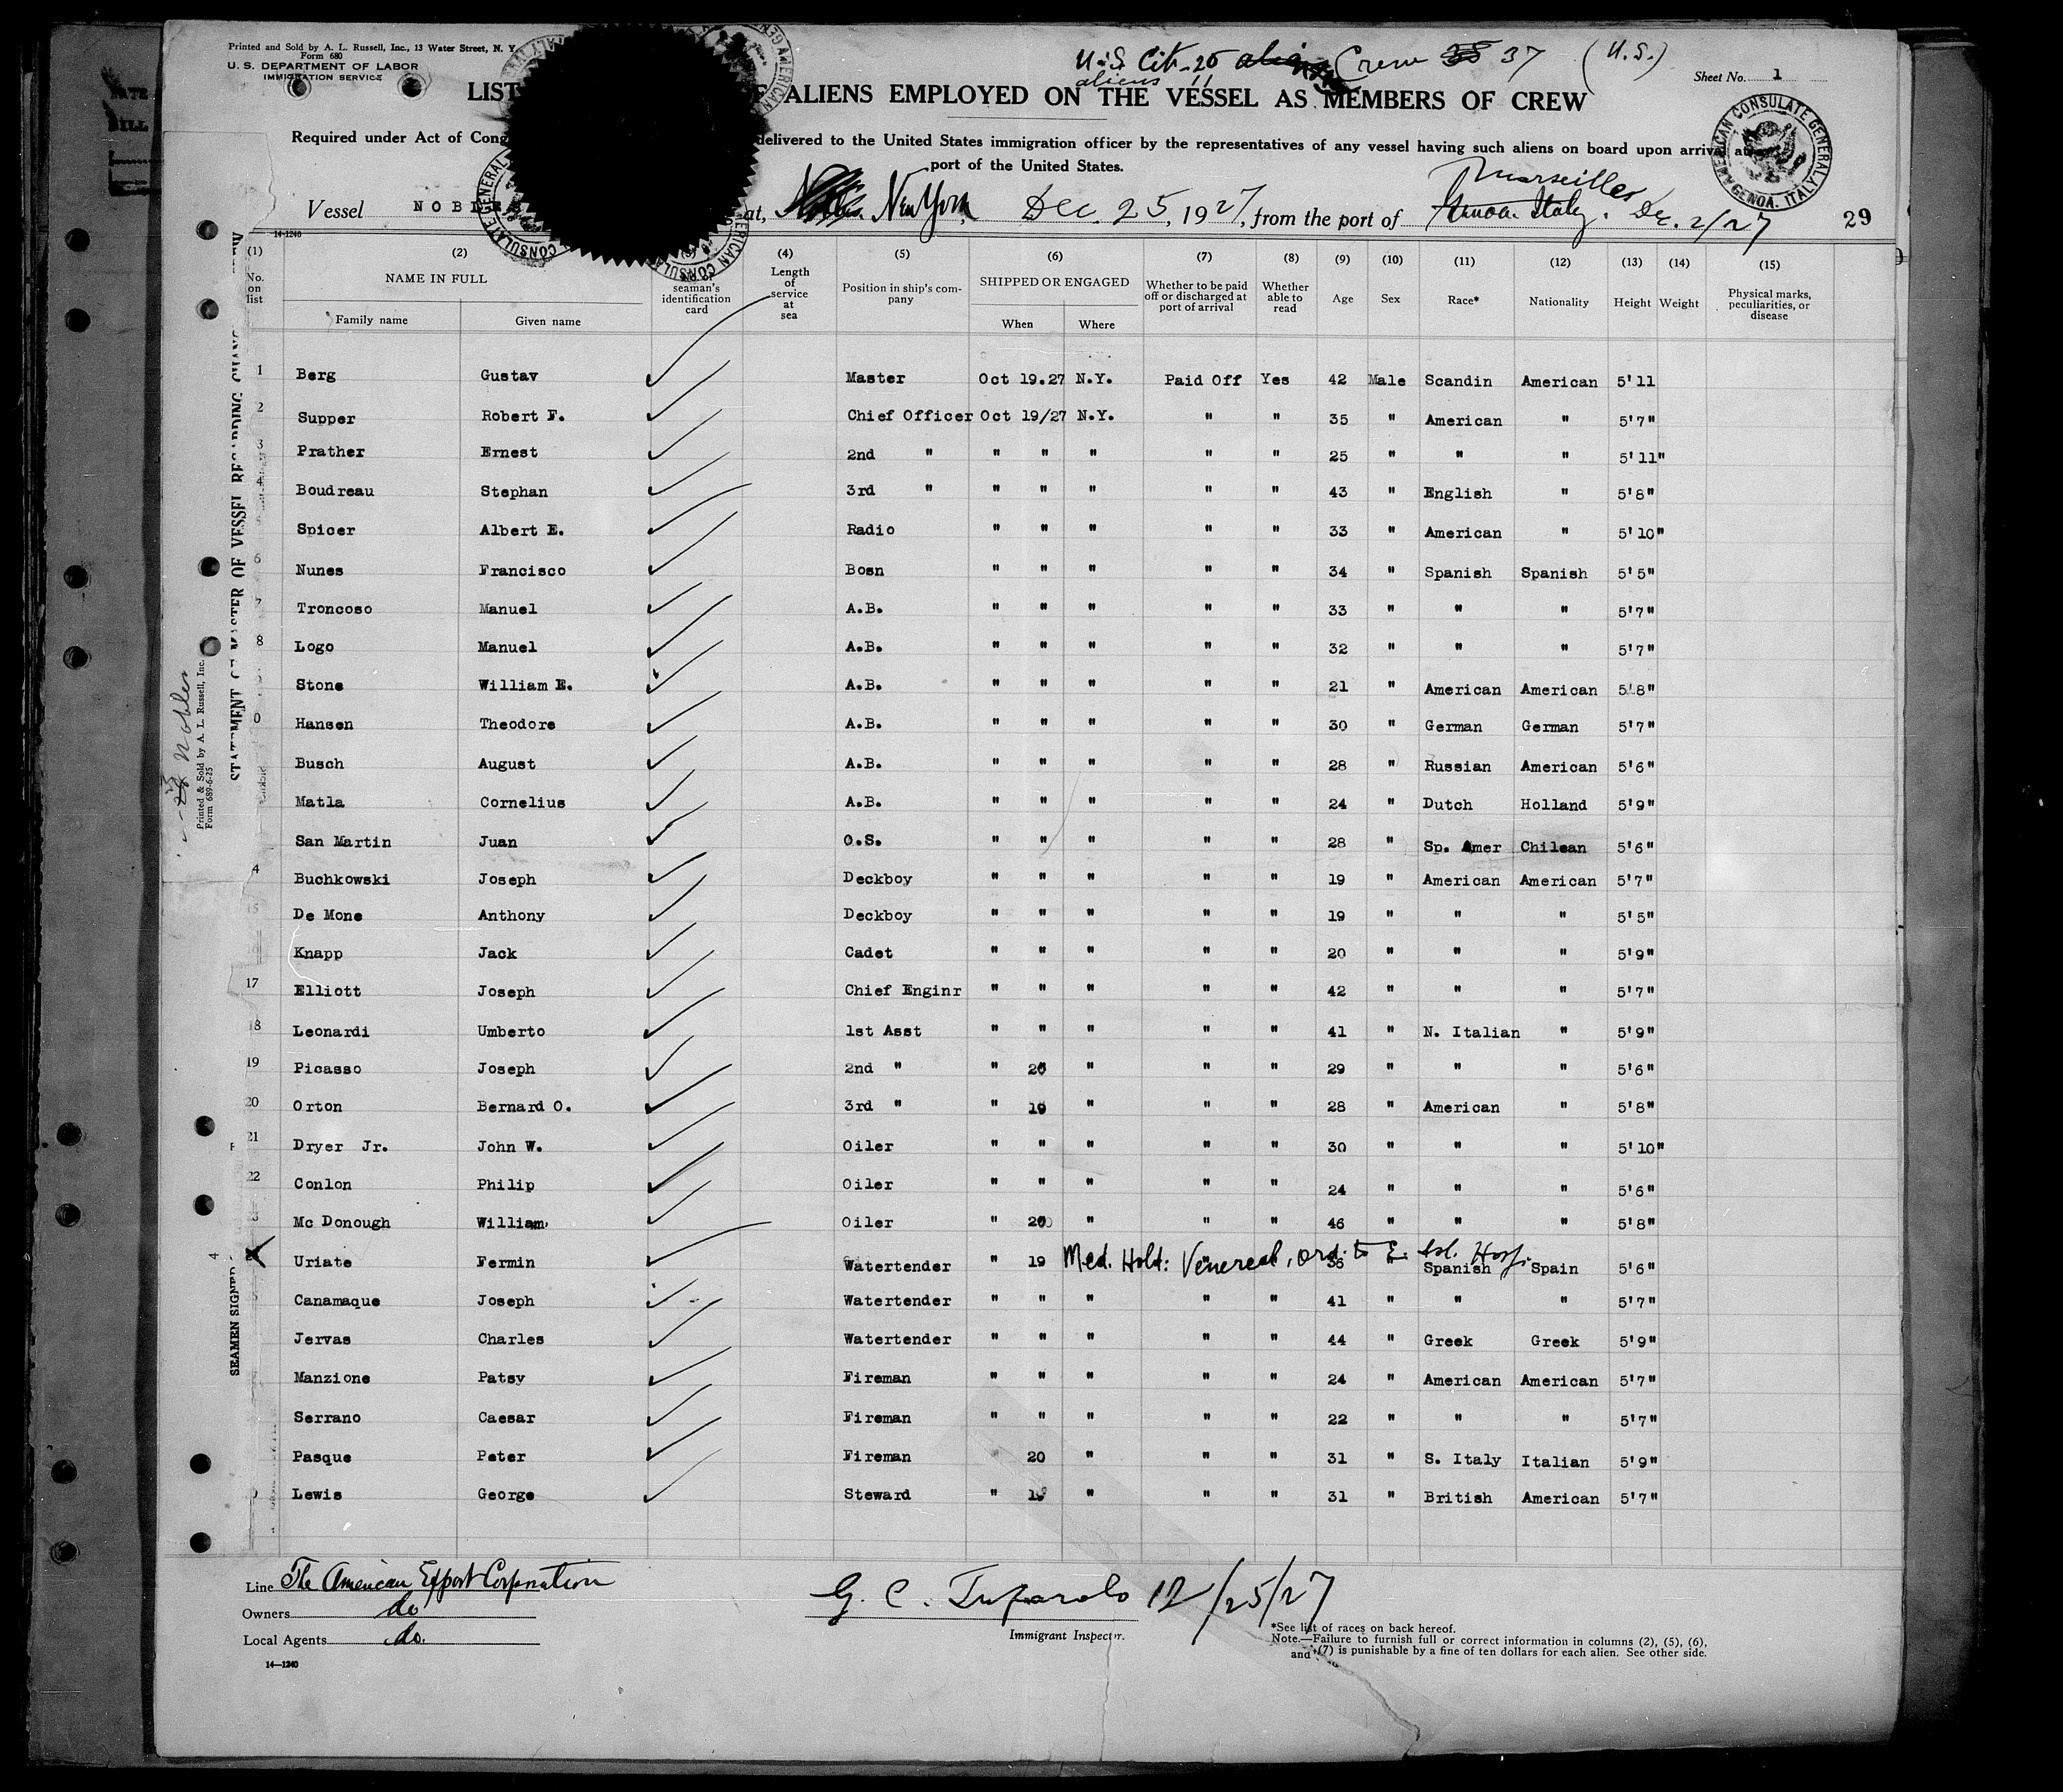 Printed and Sold by A. L. Russell, Inc., 13 Water Street, N. Y.
Form 680
U. S. DEPARTMENT OF LABOR
IMMIGRATION SERVICE
U.S. Cit. 25 Crew 37 (U.S.)
aliens 11
Sheet No. 1
LIST F ALIENS EMPLOYED ON THE VESSEL AS MEMBERS OF CREW
Required under Act of Cong delivered to the United States immigration officer by the representatives of any vessel having such aliens on board upon arrival at
port of the United States.
AMERICAN CONSULATE GENERAL GENOA, ITALY
Marseilles
Vessel NOBLES at, New York, Dec. 25, 1927, from the port of Genoa Italy. Dec. 2/27 29
14-1240
(1) (2) (4) (5) (6) (7) (8) (9) (10) (11) (12) (13) (14) (15)
No. on list NAME IN FULL seaman's identification card Length of service at sea Position in ship's company SHIPPED OR ENGAGED Whether to be paid off or discharged at port of arrival Whether able to read Age Sex Race* Nationality Height Weight Physical marks, peculiarities, or disease
Family name Given name When Where
1 Berg Gustav Master Oct 19.27 N.Y. Paid Off Yes 42 Male Scandin American 5'11
2 Supper Robert F. Chief Officer Oct 19/27 N.Y. " " 35 " American " 5'7"
3 Prather Ernest 2nd " " " " " " 25 " " " 5'11"
4 Boudreau Stephan 3rd " " " " " " 43 " English " 5'8"
Spicer Albert E. Radio " " " " " 33 " American " 5'10"
6 Nunes Francisco Bosn " " " " " 34 " Spanish Spanish 5'5"
7 Troncoso Manuel A.B. " " " " " 33 " " " 5'7"
8 Logo Manuel A.B. " " " " " 32 " " " 5'7"
Stone William E. A.B. " " " " " 21 " American American 5'8"
0 Hansen Theodore A.B. " " " " " 30 " German German 5'7"
Busch August A.B. " " " " " 28 " Russian American 5'6"
Matla Cornelius A.B. " " " " " 24 " Dutch Holland 5'9"
San Martin Juan O.S. " " " " " 28 " Sp. Amer Chilean 5'6"
4 Buchkowski Joseph Deckboy " " " " " 19 " American American 5'7"
15 De Mone Anthony Deckboy " " " " " 19 " " " 5'5"
Knapp Jack Cadet " " " " " 20 " " " 5'9"
17 Elliott Joseph Chief Enginr " " " " " 42 " " " 5'7"
18 Leonardi Umberto 1st Asst " " " " " 41 " N. Italian " 5'9"
19 Picasso Joseph 2nd " " 20 " " " 29 " " " 5'6"
20 Orton Bernard O. 3rd " " 19 " " " 28 " American " 5'8"
21 Dryer Jr. John W. Oiler " " " " " 30 " " " 5'10"
22 Conlon Philip Oiler " " " " " 24 " " " 5'6"
3 Mc Donough William Oiler " 20 " " " 46 " " " 5'8"
Uriate Fermin Watertender " 19 Med. Hold: Venereal, ord. to E. Isl. Hosp. 36 Spanish Spain 5'6"
Canamaque Joseph Watertender " " " " " 41 " " " 5'7"
Jervas Charles Watertender " " " " " 44 " Greek Greek 5'9"
Manzione Patsy Fireman " " " " " 24 " American American 5'7"
Serrano Caesar Fireman " " " " " 22 " " " 5'7"
Pasque Peter Fireman " 20 " " " 31 " S. Italy Italian 5'9"
Lewis George Steward " 19 " " " 31 " British American 5'7"
Line The American Export Corporation
Owners do
Local Agents do.
14—1240
12/25/27
Immigrant Inspector.
*See list of races on back hereof.
Note.—Failure to furnish full or correct information in columns (2), (5), (6),
and (7) is punishable by a fine of ten dollars for each alien. See other side.
STATEMENT OF MASTER OF VESSEL REGARDING
Printed & Sold by A. L. Russell, Inc.
Form 689-6-25
Nobles
SEAMEN SIGNED